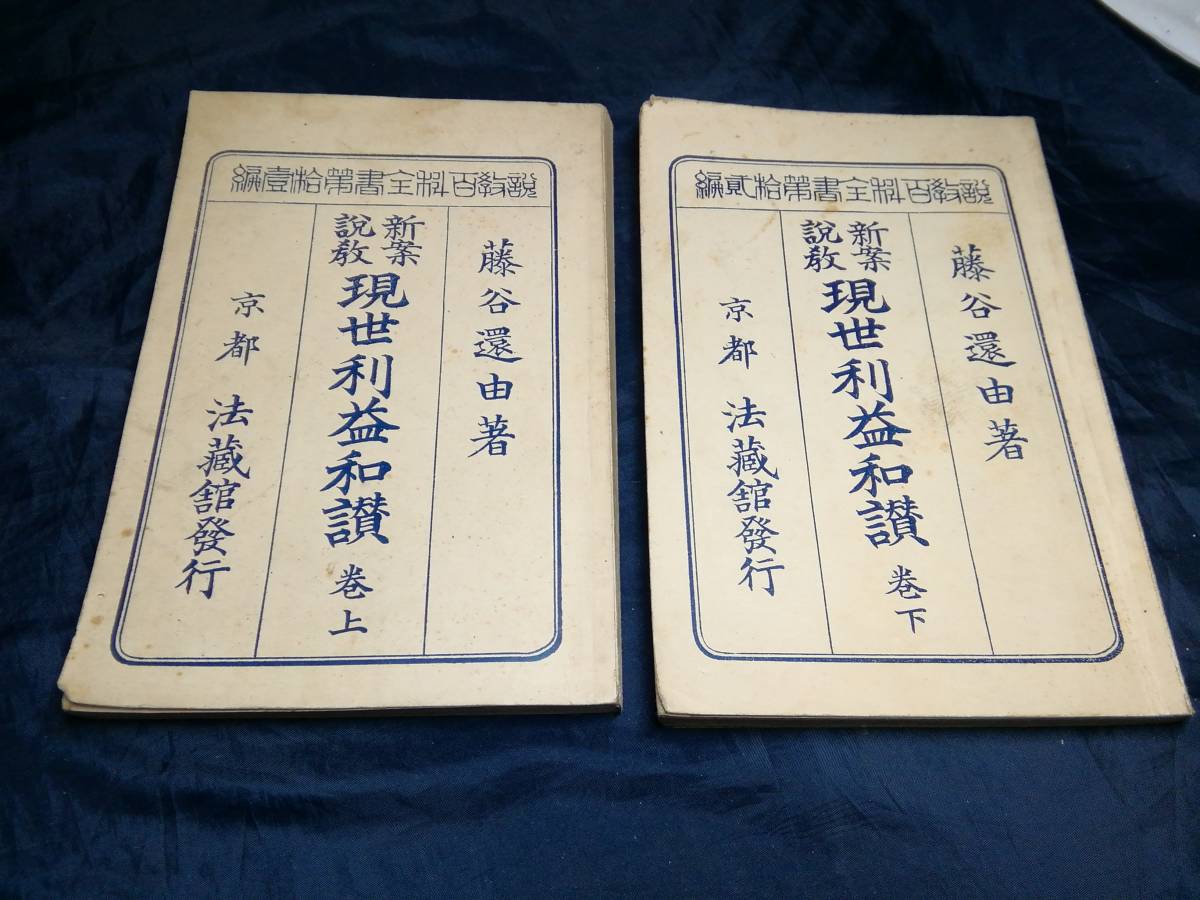 說教百科全書第拾壹編
藤谷還由著
新案
說敎
現世利益和讃
卷上
京都 法藏館發行
說教百科全書第拾貳編
藤谷還由著
新案
說敎
現世利益和讃
卷下
京都 法藏館發行